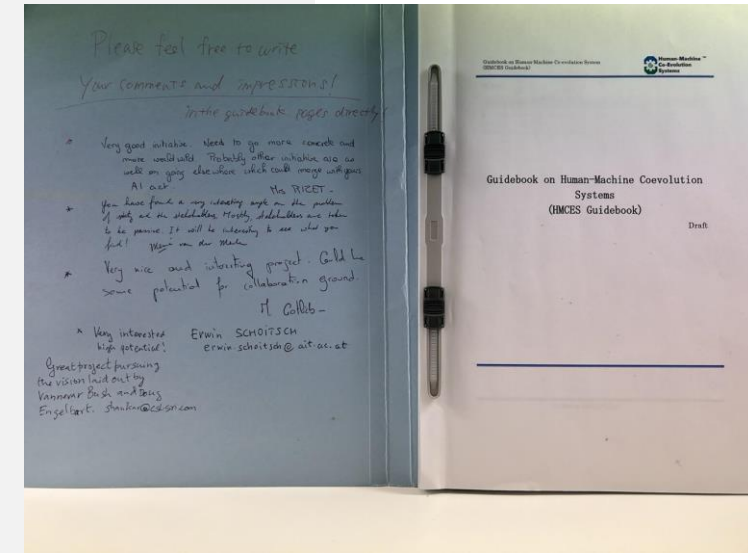 Please feel free to write
Your comments and impressions!
in the guidebook pages directly!
* Very good initiative. Need to go more concrete and
more world wild. Probably other initiative are as
well on going elsewhere which could merge with yours
AI act.
Mrs RIZET -
* You have found a very interesting angle on the problem
of safety and the stakeholders. Mostly, stakeholders are taken
to be passive. It will be interesting to see what you
find! van der Meulen
* Very nice and interesting project. Could be
some potential for collaboration ground.
M Gottlib -
* Very interested
high potential! Erwin SCHOITSCH
erwin.schoitsch@ait.ac.at
Great project pursuing
the vision laid out by
Vannevar Bush and Doug
Engelbart. shankar@csl.sri.com
Guidebook on Human-Machine Co-evolution System
(HMCES Guidebook)
Human-Machine ™
Co-Evolution
Systems
Guidebook on Human-Machine Coevolution
Systems
(HMCES Guidebook)
Draft